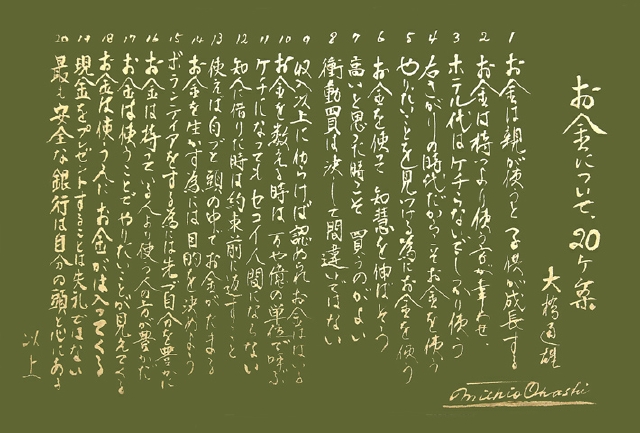 お金について、20ヶ条
大橋
1 お金は親が使うと子供が成長する
2 お金は持つより使う方が幸わせ
3 ホテル代はケチらないでしっかり使う
4 右さがりの時代だからこそお金を使う
5 やりたいことを見つける為にお金を使う
6 お金を使って知恵を伸ばそう
7 高いと思った時こそ買うのがよい
8 衝動買は決して間違いではない
9 収入以上に働らけば認められお金ははいる
10 お金を数える時は万や億の単位で呼ぶ
11 ケチになってもセコイ人間にならない
12 知人へ借りた時は約束前に返すこと
13 使えば自づと頭の中でお金がたまる
14 お金を生かす為には目的を決めよう
15 ボランティアをする為には先づ自分を豊かに
16 お金は持っている人より使う人の方が豊かだ
17 お金は使うことでやりたいことが見えてくる
18 お金は使う人にお金が入ってくる
19 現金をプレゼントすることは失礼ではない
20 最も安全な銀行は自分の頭と心にある
以上
Michio Ohashi